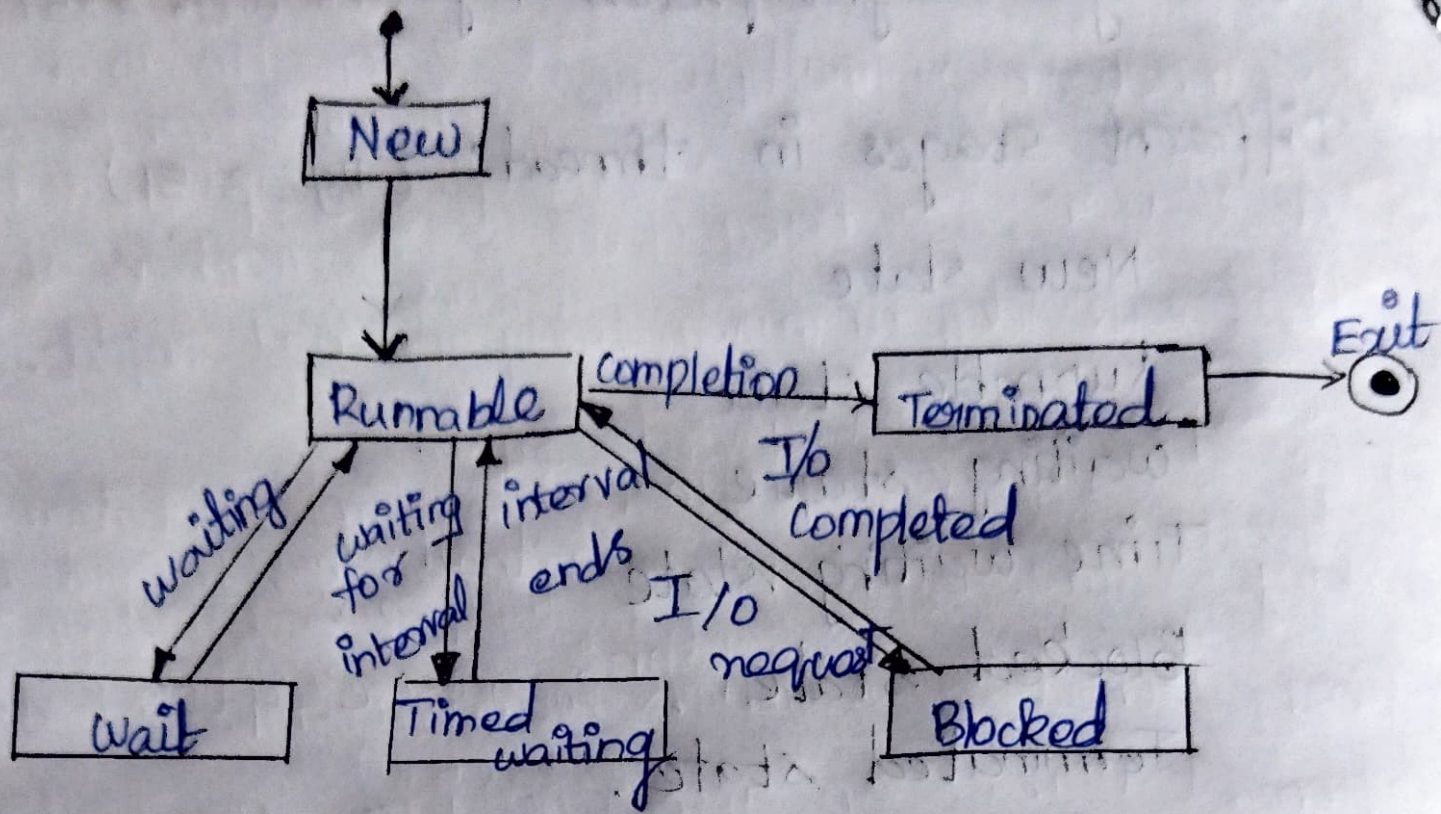 New
Exit
Runnable
Completion
Terminated
I/o
Completed
waiting
waiting
for
interval
interval
ends
I/O
request
wait
Timed
waiting
Blocked